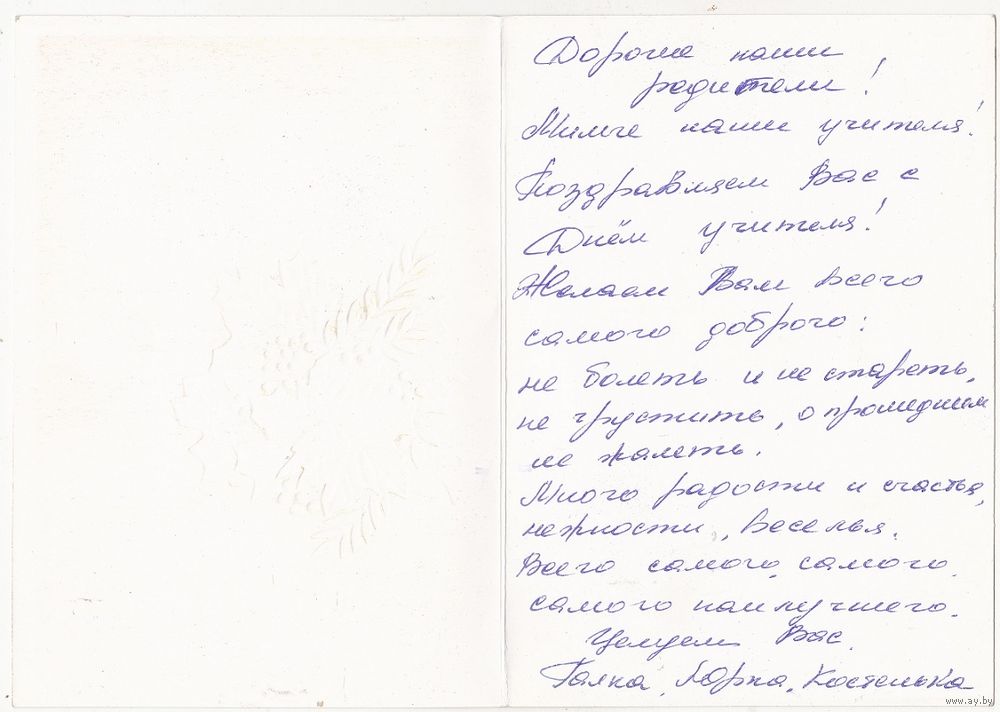 Дорогие наши
родители!
Милые наши учителя!
Поздравляем Вас с
Днём учителя!
Желаем Вам всего
самого доброго:
не болеть и не стареть,
не грустить, о прошедшем
не жалеть.
Много радости и счастья,
нежности, веселья.
Всего самого, самого,
самого наилучшего.
Целуем Вас.
Галка, Юрка, Костенька
www.ay.by